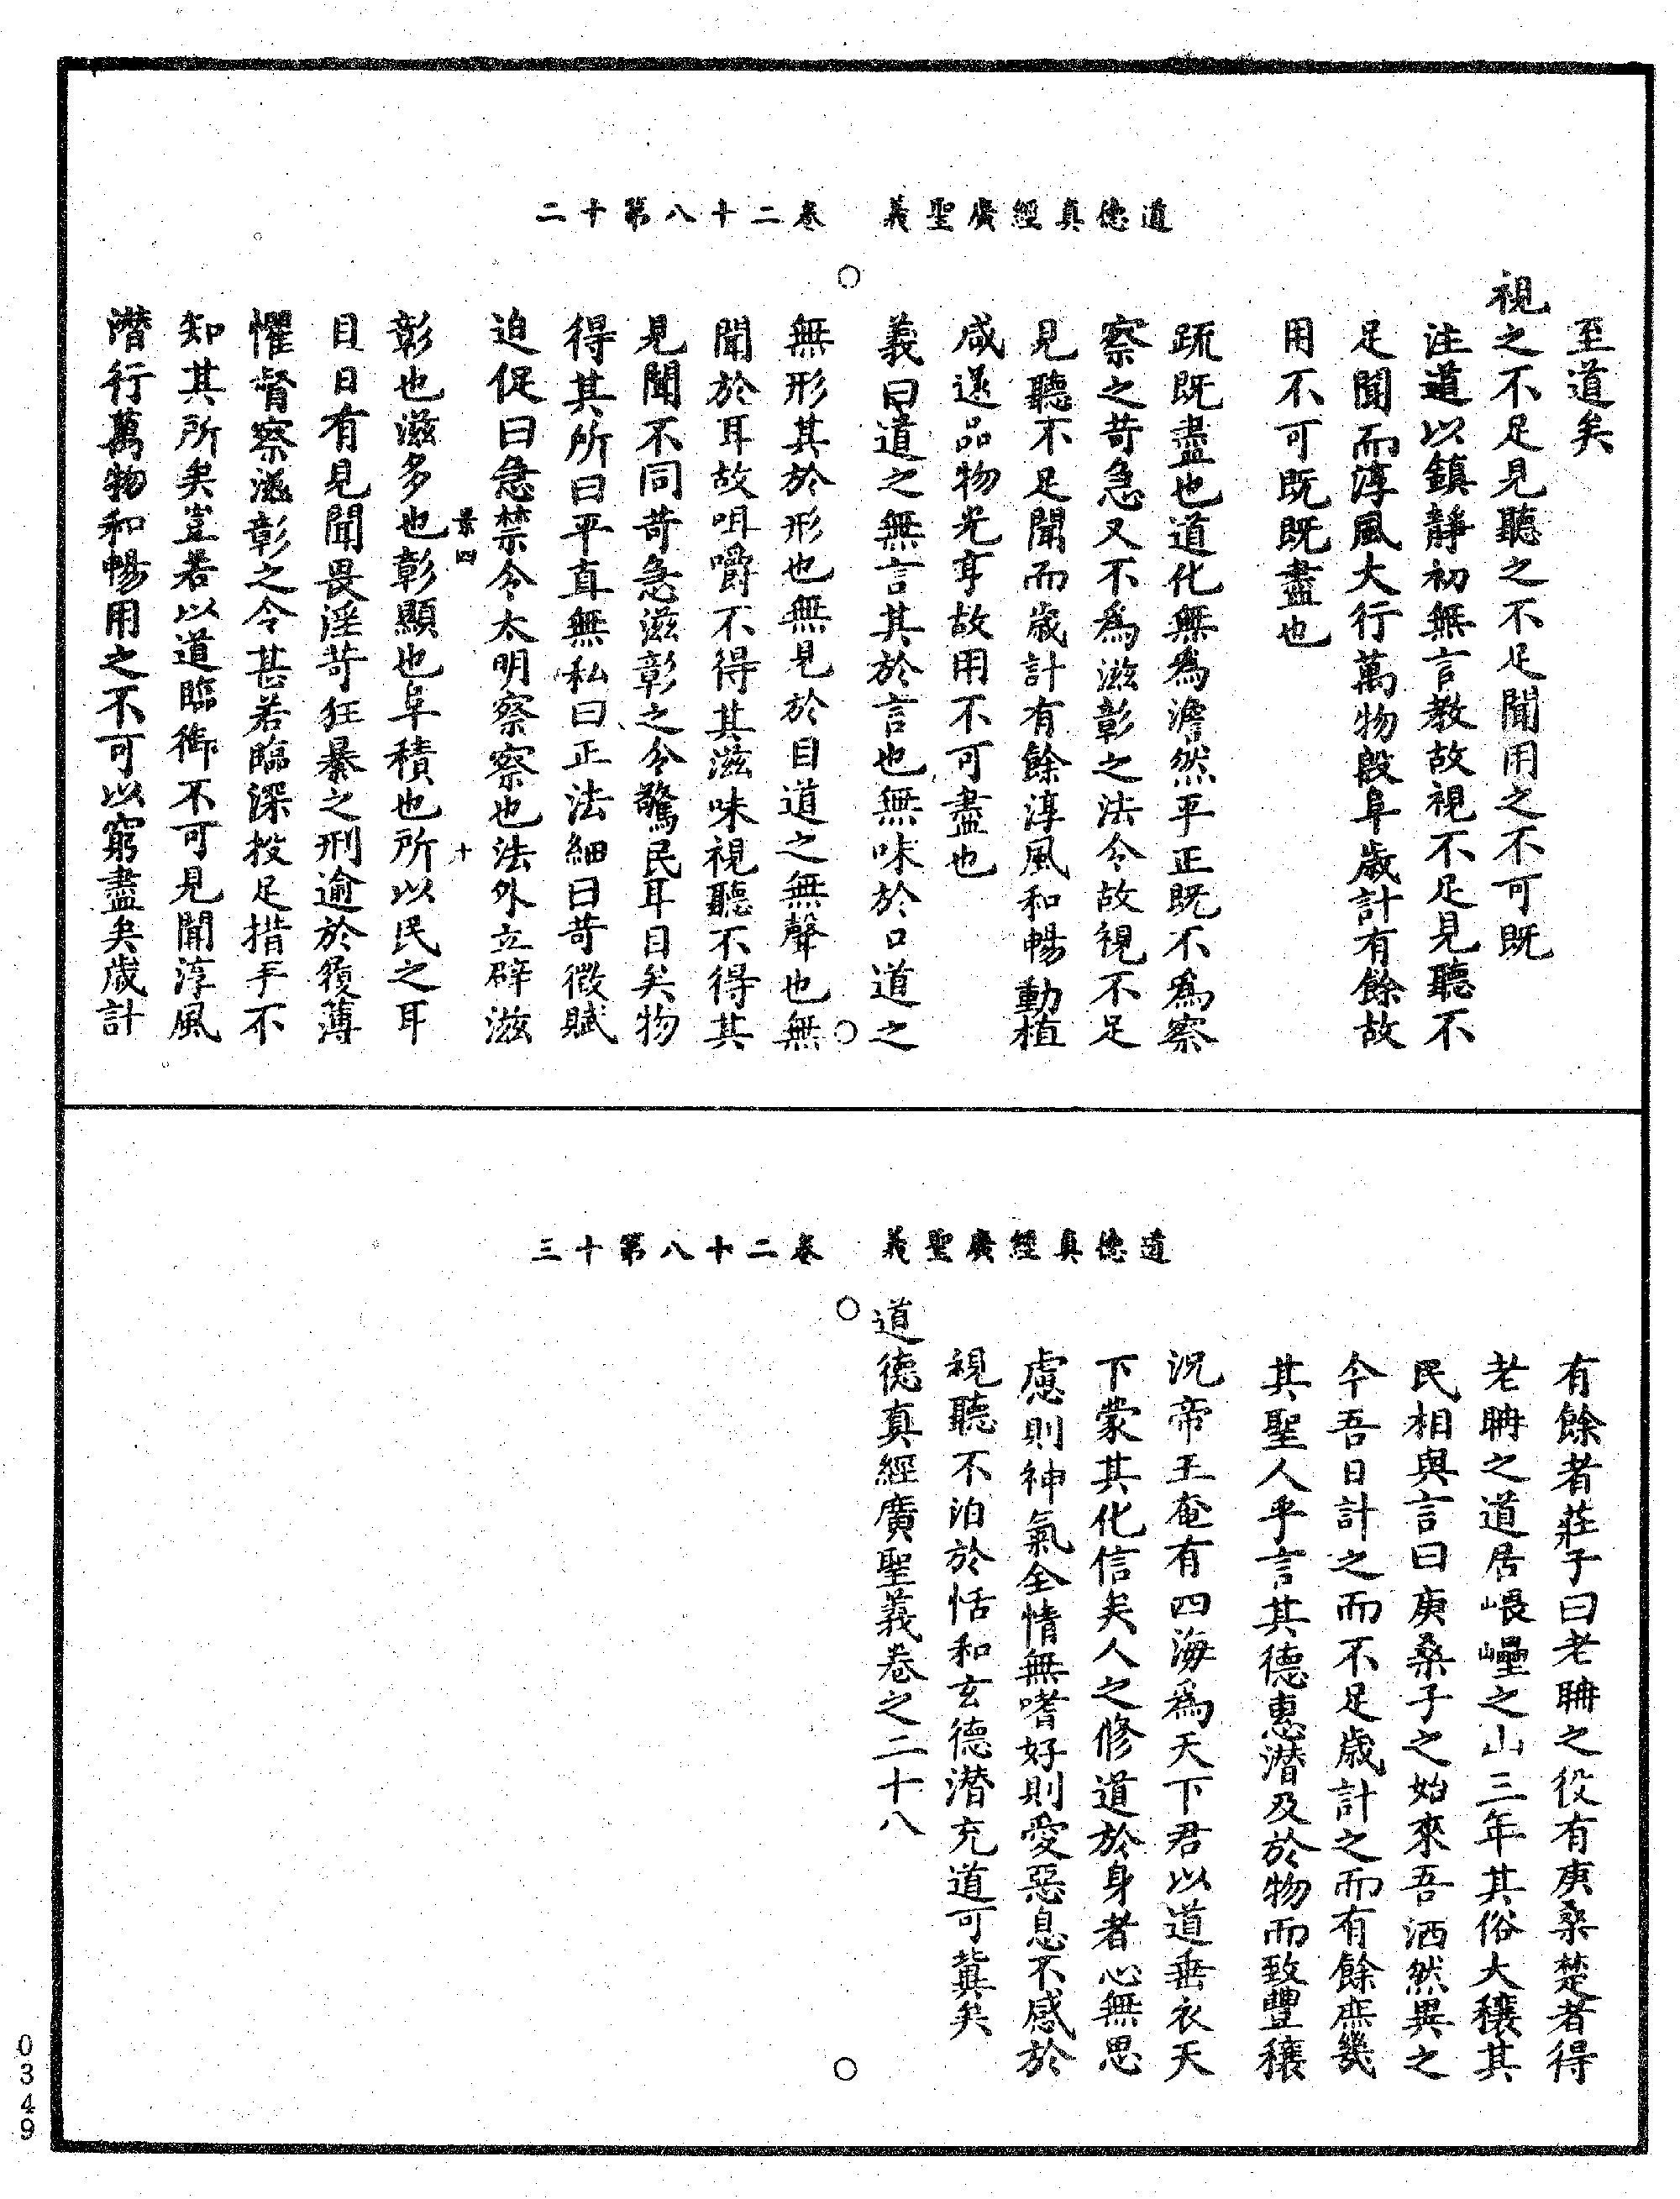 道德真經廣聖義　卷二十八第十二
至道矣
視之不足見聽之不足聞用之不可既
注道以鎮靜初無言教故視不足見聽不
足聞而淳風大行萬物殷阜歲計有餘故
用不可既既盡也
疏既盡也道化無爲澹然平正既不爲察
察之苛急又不爲滋彰之法令故視不足
見聽不足聞而歲計有餘淳風和暢動植
咸遂品物光亨故用不可盡也
義曰道之無言其於言也無味於口道之
無形其於形也無見於目道之無聲也無
聞於耳故咀嚼不得其滋味視聽不得其
見聞不同苛急滋彰之令驚民耳目矣物
得其所曰平直無私曰正法細曰苛徵賦
迫促曰急禁令太明察察也法外立辟滋
景四　十
彰也滋多也彰顯也阜積也所以民之耳
目日有見聞畏淫苛狂暴之刑逾於履薄
懼督察滋彰之令甚若臨深投足措手不
知其所矣豈若以道臨御不可見聞淳風
潛行萬物和暢用之不可以窮盡矣歲計
道德真經廣聖義　卷二十八第十三
有餘者莊子曰老聃之役有庚桑楚者得
老聃之道居㟪壘之山三年其俗大穰其
民相與言曰庚桑子之始來吾洒然異之
今吾日計之而不足歲計之而有餘庶幾
其聖人乎言其德惠潛及於物而致豐穰
況帝王奄有四海爲天下君以道垂衣天
下蒙其化信矣人之修道於身者心無思
慮則神氣全情無嗜好則愛惡息不感於
視聽不泊於恬和玄德潛充道可冀矣
道德真經廣聖義卷之二十八
0349